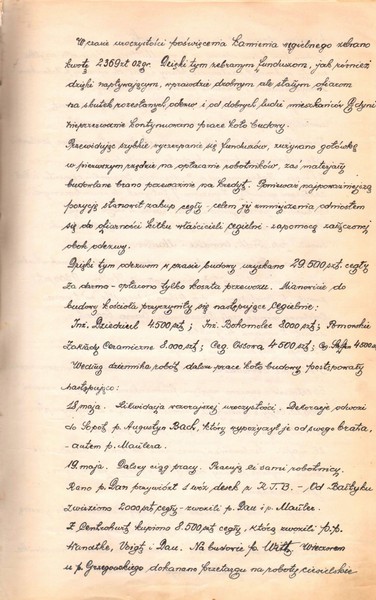 W czasie uroczystości poświęcenia kamienia węgielnego zebrano
kwotę 2369 zł 02 gr. Dzięki tym zebranym funduszom, jak również
dzięki napływającym, wprawdzie drobnym ale stałym ofiarom
na skutek rozesłanych odezw i od dobrych ludzi mieszkańców Gdyni
nieprzerwanie kontynuowano prace koło budowy.
Przewidując szybkie wyczerpanie się funduszów, zużywano gotówkę
w pierwszym rzędzie na opłacanie robotników, zaś materjały
budowlane brano przeważnie na kredyt. Ponieważ najpoważniejszą
pozycję stanowił zakup cegły - celem jej zmniejszenia, odniosłem
się do ofiarności kilku właścicieli cegielni - zapomocą załączonej
obok odezwy.
Dzięki tym odezwom w czasie budowy uzyskano 29.500 szt. cegły
za darmo - opłacono tylko koszta przewozu. Mianowicie do
budowy kościoła przyczyniły się następujące cegielnie:
Inż. Dziedziel 4500 szt; Inż. Bohomolec 8000 szt; Pomorskie
Zakłady Ceramiczne 8.000 szt; Ceg. Ossora 4500 szt; Ceg. 4500
Według dziennika robót dalsze prace koło budowy postępowały
następująco:
18 maja. Likwidacja wczorajszej uroczystości. Dekoracje odwozi
do Sopot p. Augustyn Bach, który wypożyczył je od swego brata,
- autem p. Maulera.
19 maja. Dalszy ciąg pracy. Pracują ci sami robotnicy.
Rano p. Pan przywiózł 1 wóz desek z K.T.B. - Od Bałtyku
zwieziono 2000 szt. cegły - zwozili p. Pau i p. Mauler.
Z Centrohurt kupiono 8.500 szt. cegły, którą zwozili p.p.
Wandtke, Voigt i Pau. Na budowie p. Witt,
u p. Grzegowskiego dokonano przetargu na roboty ciesielskie